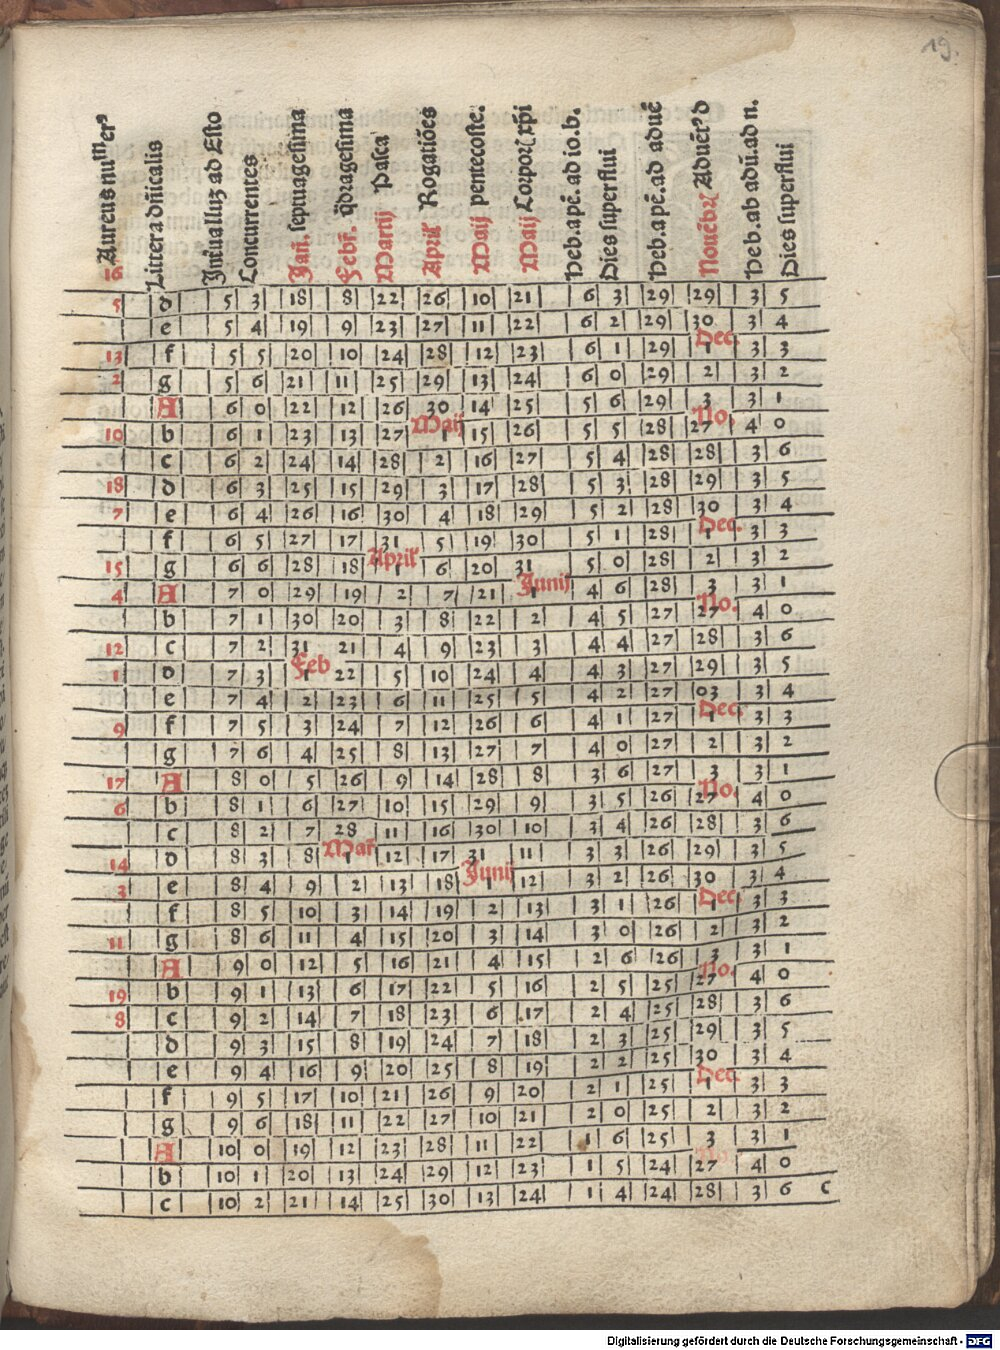 19.
Aureus nu^mer⁹
Littera dn̄icalis
Int̄uallū ad Esto
Concurrentes
Jañ. septuagesima
Febr̄. q̄dragesima
Martij Pasca
April̄ Rogatiōes
Maij pentecoste.
Maij Corpor̄ xp̄i
Heb.apē.ad io.b.
Dies superflui
Heb.apē.ad aduē
Nouēbr̄ Aduēt⁹ d
Heb.ab adū.ad n.
Dies superflui
5 d 5 3 18 8 22 26 10 21 6 3 29 29 3 5
e 5 4 19 9 23 27 11 22 6 2 29 30 3 4
Dec.
13 f 5 5 20 10 24 28 12 23 6 1 29 1 3 3
2 g 5 6 21 11 25 29 13 24 6 0 29 2 3 2
A 6 0 22 12 26 30 14 25 5 6 29 3 3 1
Maij No.
10 b 6 1 23 13 27 1 15 26 5 5 28 27 4 0
c 6 2 24 14 28 2 16 27 5 4 28 28 3 6
18 d 6 3 25 15 29 3 17 28 5 3 28 29 3 5
7 e 6 4 26 16 30 4 18 29 5 2 28 30 3 4
Dec.
f 6 5 27 17 31 5 19 30 5 1 28 1 3 3
April̄
15 g 6 6 28 18 1 6 20 31 5 0 28 2 3 2
Junij
4 A 7 0 29 19 2 7 21 1 4 6 28 3 3 1
No.
b 7 1 30 20 3 8 22 2 4 5 27 27 4 0
12 c 7 2 31 21 4 9 23 3 4 4 27 28 3 6
Feb
1 d 7 3 1 22 5 10 24 4 4 3 27 29 3 5
e 7 4 2 23 6 11 25 5 4 2 27 03 3 4
Dec.
9 f 7 5 3 24 7 12 26 6 4 1 27 1 3 3
g 7 6 4 25 8 13 27 7 4 0 27 2 3 2
17 A 8 0 5 26 9 14 28 8 3 6 27 3 3 1
No.
6 b 8 1 6 27 10 15 29 9 3 5 26 27 4 0
c 8 2 7 28 11 16 30 10 3 4 26 28 3 6
Mar̄
14 d 8 3 8 1 12 17 31 11 3 3 26 29 3 5
Junij
3 e 8 4 9 2 13 18 1 12 3 2 26 30 3 4
Dec.
f 8 5 10 3 14 19 2 13 3 1 26 1 3 3
11 g 8 6 11 4 15 20 3 14 3 0 26 2 3 2
A 9 0 12 5 16 21 4 15 2 6 26 3 3 1
No.
19 b 9 1 13 6 17 22 5 16 2 5 25 27 4 0
8 c 9 2 14 7 18 23 6 17 2 4 25 28 3 6
d 9 3 15 8 19 24 7 18 2 3 25 29 3 5
e 9 4 16 9 20 25 8 19 2 2 25 30 3 4
Dec.
f 9 5 17 10 21 26 9 20 2 1 25 1 3 3
g 9 6 18 11 22 27 10 21 2 0 25 2 3 2
A 10 0 19 12 23 28 11 22 1 6 25 3 3 1
No.
b 10 1 20 13 24 29 12 23 1 5 24 27 4 0
c 10 2 21 14 25 30 13 24 1 4 24 28 3 6 c
Digitalisierung gefördert durch die Deutsche Forschungsgemeinschaft - DFG